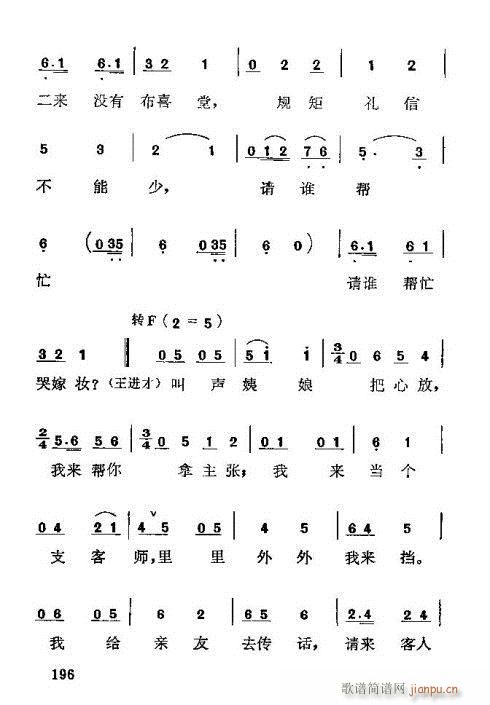 6·1 6·1 | 3 2 1 | 0 2 2 | 1 2
二来 没有 布喜 堂， 规矩 礼信
5 3 | 2 1 | 0 1 2 7 6 | 5· 3
不 能 少， 请 谁 帮
6 (0 35 | 6 0 35 | 6 0) | 6·1 6 1
忙 请谁 帮忙
转F（2=5）
3 2 1 ‖ 0 5 0 5 | 5 i i | 3/4 0 6 5 4
哭嫁 妆？（王进才）叫 声 姨 娘 把 心 放，
2/4 5·6 5 6 | 3/4 0 5 1 2 | 0 1 0 1 | 6 1
我来 帮你 拿 主 张， 我 来 当 个
0 4 2 1 | 4 5 0 5 | 4 5 | 6 4 5
支 客 师，里 里 外 外 我来 挡。
0 6 0 5 | 6 2 | 6 5 6 | 2·4 2 4
我 给 亲 友 去传 话， 请来 客人
196
歌谱简谱网
jianpu.cn